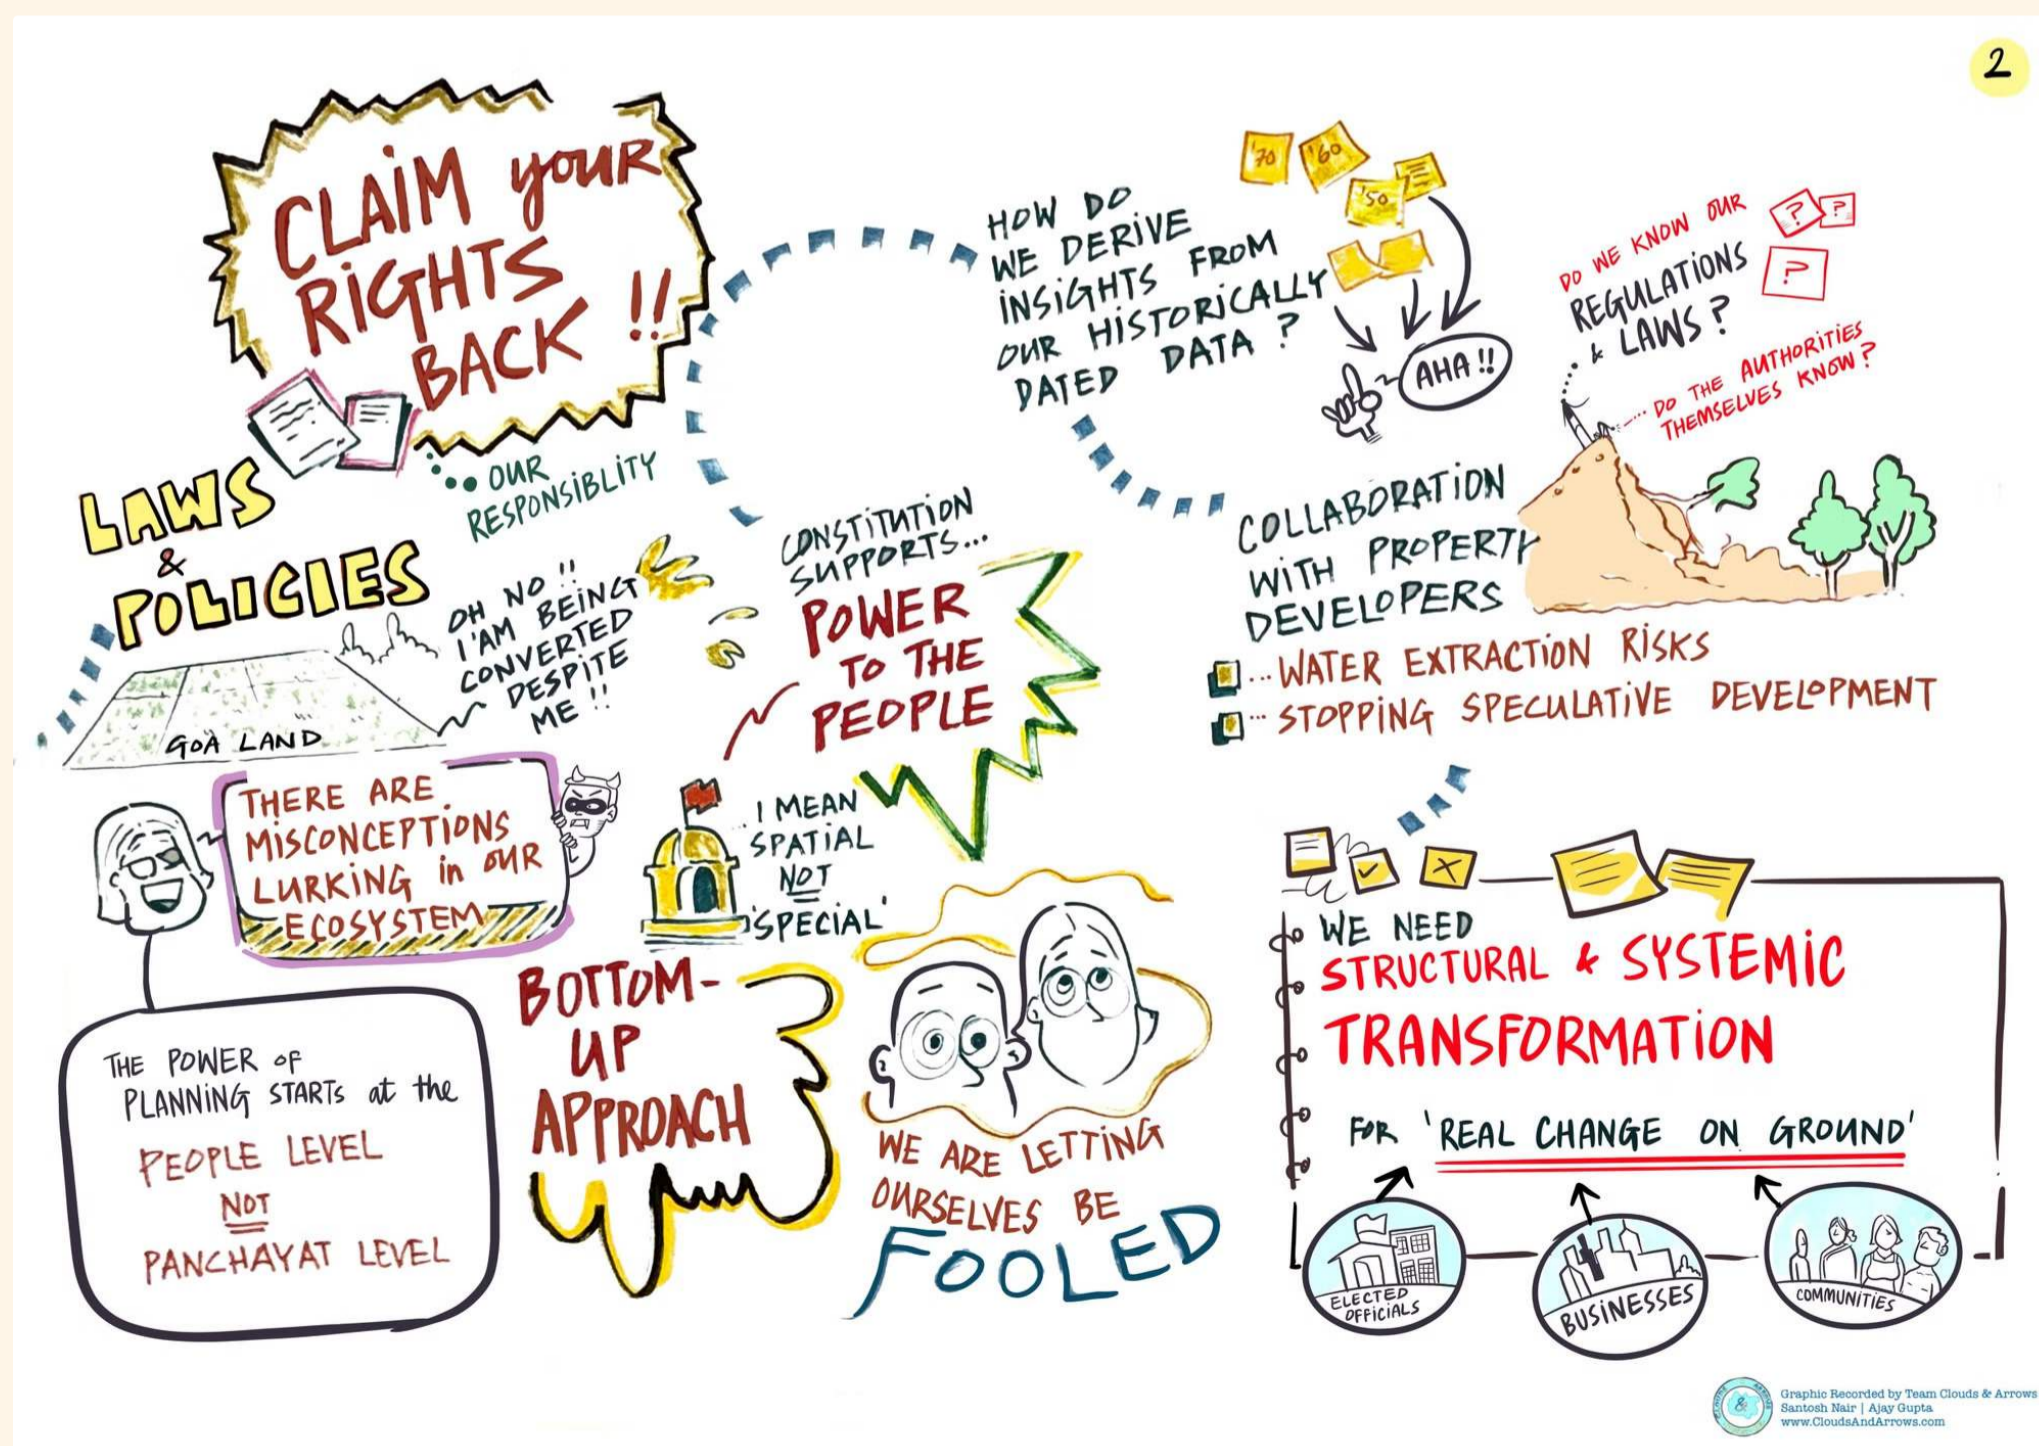 2
CLAIM your
RIGHTS
BACK !!
OUR
RESPONSIBLITY
LAWS
&
POLICIES
OH NO !!
I'AM BEING
CONVERTED
DESPITE
ME !!
GOA LAND
THERE ARE
MISCONCEPTIONS
LURKING in OUR
ECOSYSTEM
THE POWER OF
PLANNING STARTS at the
PEOPLE LEVEL
NOT
PANCHAYAT LEVEL
CONSTITUTION
SUPPORTS...
POWER
TO THE
PEOPLE
I MEAN
SPATIAL
NOT
'SPECIAL'
BOTTOM-
UP
APPROACH
WE ARE LETTING
OURSELVES BE
FOOLED
HOW DO
WE DERIVE
INSIGHTS FROM
OUR HISTORICALLY
DATED DATA ?
'70
'60
'50
AHA !!
DO WE KNOW OUR
REGULATIONS
& LAWS ?
? ?
?
DO THE AUTHORITIES
THEMSELVES KNOW ?
COLLABORATION
WITH PROPERTY
DEVELOPERS
... WATER EXTRACTION RISKS
... STOPPING SPECULATIVE DEVELOPMENT
WE NEED
STRUCTURAL & SYSTEMIC
TRANSFORMATION
FOR 'REAL CHANGE ON GROUND'
ELECTED
OFFICIALS
BUSINESSES
COMMUNITIES
Graphic Recorded by Team Clouds & Arrows
Santosh Nair | Ajay Gupta
www.CloudsAndArrows.com